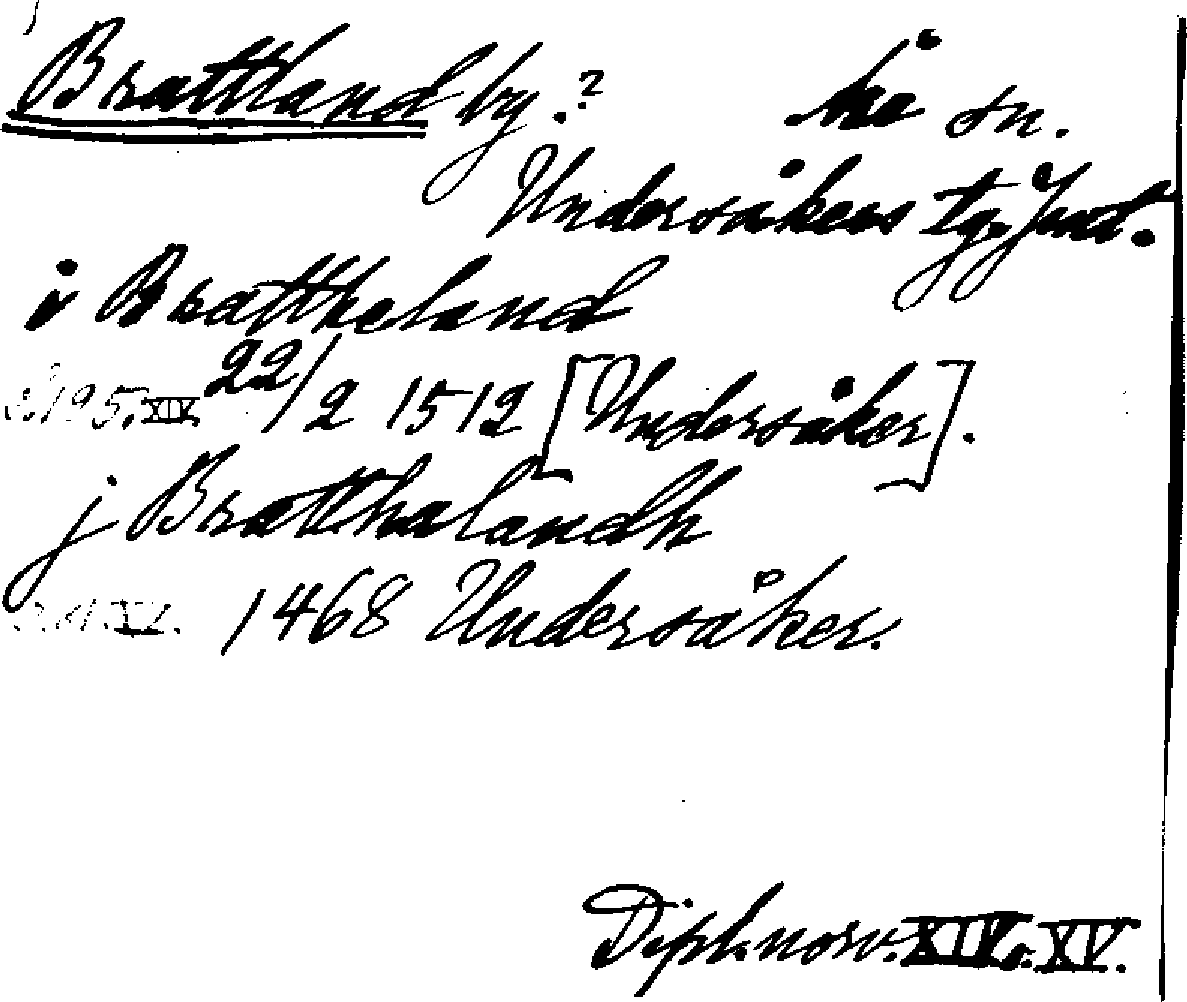 Brattland by.? Åre sn.
Undersåkers tg. Jmt.
i Brattheland
s. 195. XIV. 22/2 1512 [Undersåker].
j Bratthalandh
XV. 1468 Undersåker.
Dipl. norv. XIV o. XV.